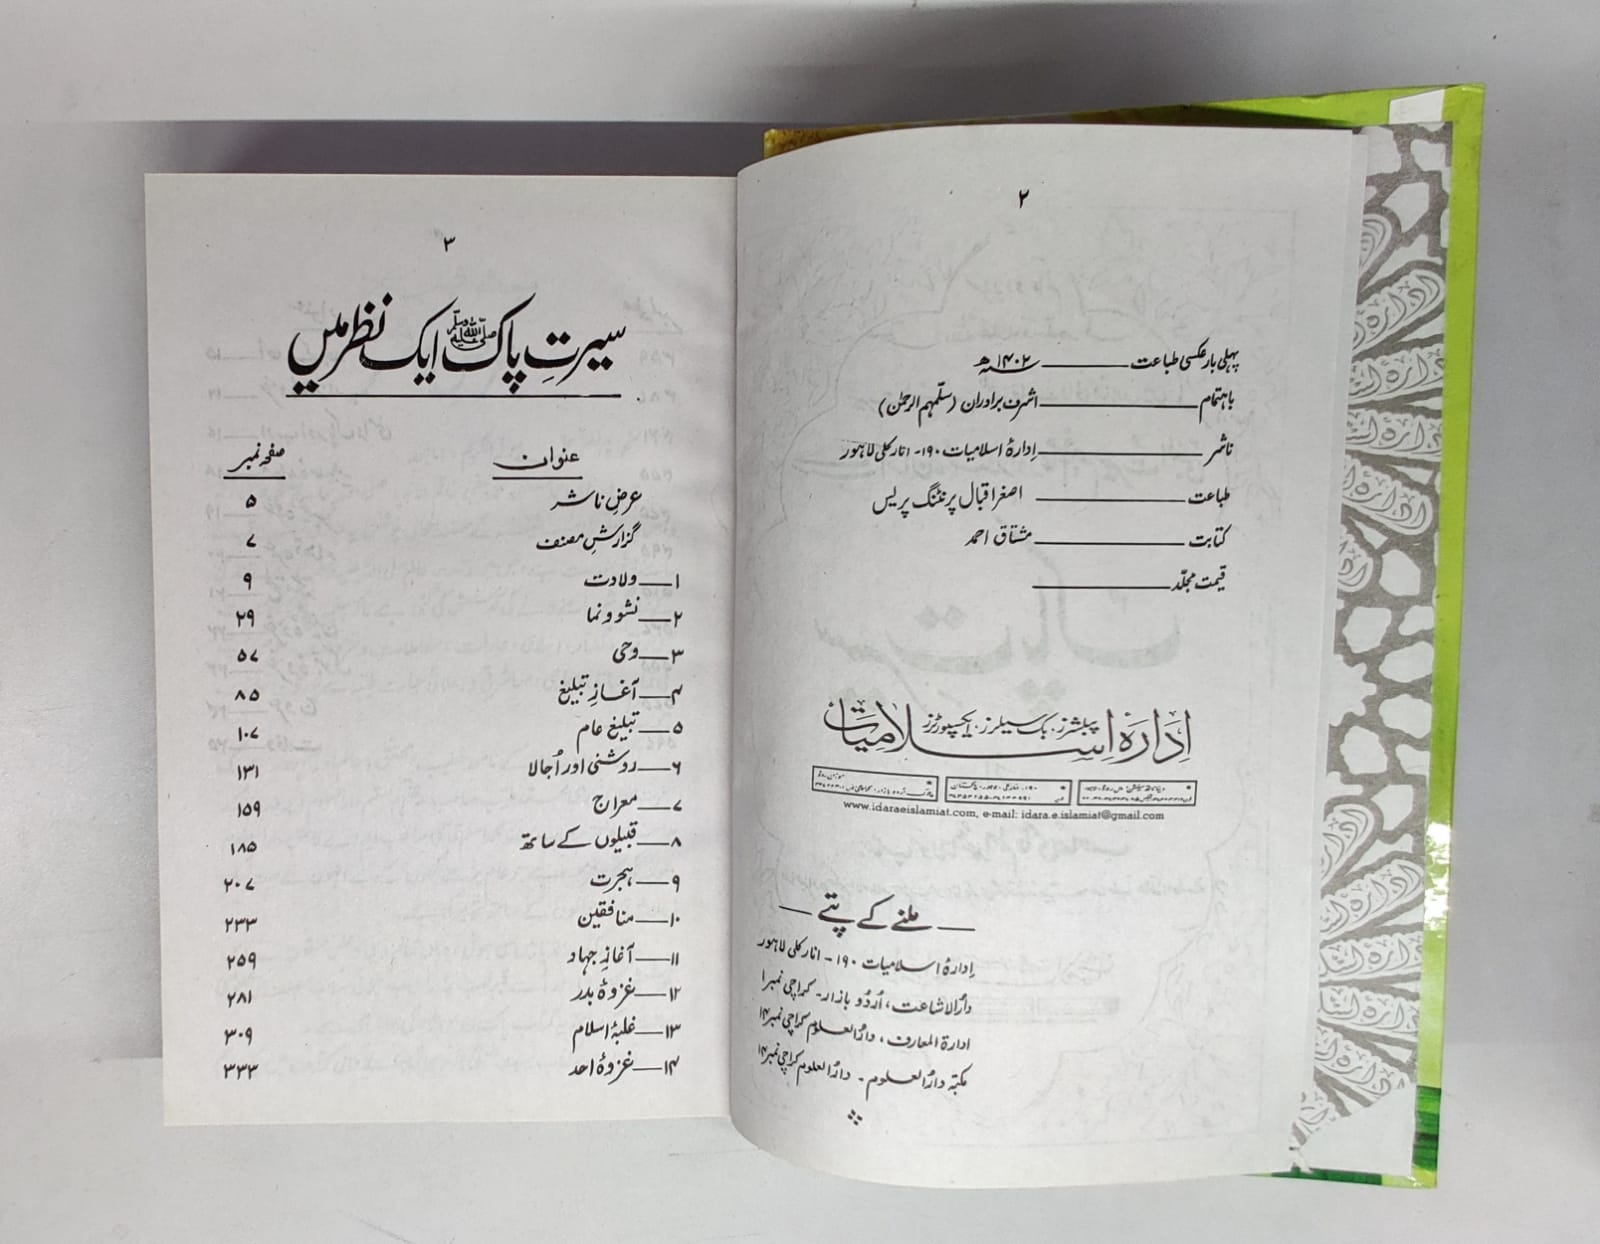 ۲
پہلی بار عکسی طباعت ۱۴۰۲ھ
باہتمام اشرف برادران (سلّمہم الرحمٰن)
ناشر ادارۂ اسلامیات ۱۹۰- انارکلی لاہور
طباعت اصغر اقبال پرنٹنگ پریس
کتابت مشتاق احمد
قیمت مجلّد
ادارہ اسلامیات پبلشرز، بک سیلرز، ایکسپورٹرز
www.idaraeislamiat.com, e-mail: idara.e.islamiat@gmail.com
— ملنے کے پتے —
ادارۂ اسلامیات ۱۹۰- انارکلی لاہور
دارُالاشاعت، اُردُو بازار- کراچی نمبر۱
ادارۃ المعارف، دارُالعلوم کراچی نمبر۱۴
مکتبہ دارُالعلوم- دارُالعلوم کراچی نمبر۱۴
۳
سیرتِ پاک ﷺ ایک نظر میں
عنوان صفحہ نمبر
عرضِ ناشر ۵
گزارشِ مصنف ۷
۱—ولادت ۹
۲—نشوونما ۲۹
۳—وحی ۵۷
۴—آغازِ تبلیغ ۸۵
۵—تبلیغ عام ۱۰۷
۶—روشنی اور اُجالا ۱۳۱
۷—معراج ۱۵۹
۸—قبیلوں کے ساتھ ۱۸۵
۹—ہجرت ۲۰۷
۱۰—منافقین ۲۳۳
۱۱—آغازِ جہاد ۲۵۹
۱۲—غزوۂ بدر ۲۸۱
۱۳—غلبۂ اسلام ۳۰۹
۱۴—غزوۂ احد ۳۳۳